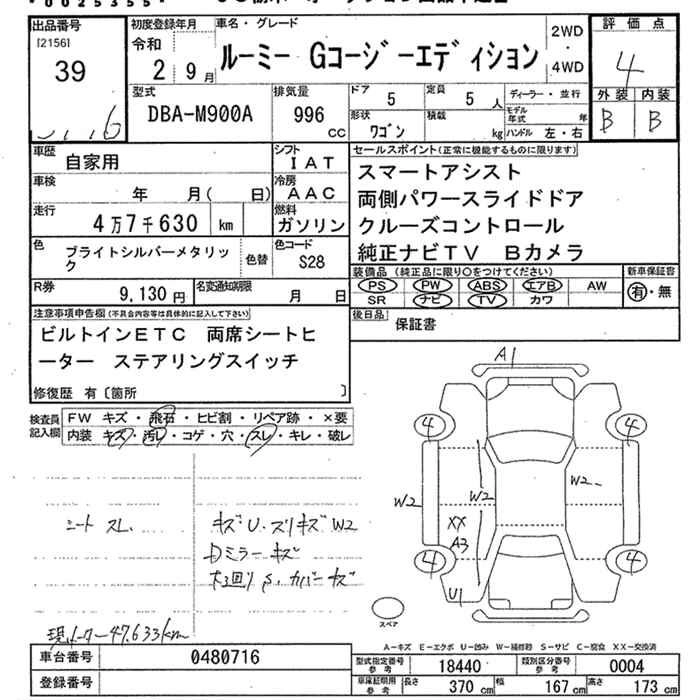 *0025355*
出品番号
[2156]
39
初度登録年月
令和
2 9月
車名・グレード
ルーミー Gコージーエディション
2WD
・
4WD
評価点
4
外装 内装
B B
型式
DBA-M900A
排気量
996
CC
ドア
5
定員
5 人
形状
ワゴン
積載
kg
ディーラー・並行
モデル年式 年
ハンドル 左・右
車歴
自家用
シフト
IAT
車検
年 月( 日)
冷房
AAC
走行
4万7千630 km
燃料
ガソリン
色
ブライトシルバーメタリック
色替
色コード
S28
R券
9,130 円
名変通知期限
月 日
セールスポイント(正常に機能するものに限ります)
スマートアシスト
両側パワースライドドア
クルーズコントロール
純正ナビTV Bカメラ
装備品(純正品に限り○をつけてください)
PS PW ABS エアB AW
SR ナビ TV カワ
新車保証書
有・無
後日品
保証書
注意事項申告欄(不具合内容等は具体的に記入して下さい)
ビルトインETC 両席シートヒ
ーター ステアリングスイッチ
修復歴 有〔箇所 〕
検査員
記入欄
FW キズ・飛石・ヒビ割・リペア跡・×要
内装 キズ・汚レ・コゲ・穴・スレ・キレ・破レ
シート スレ
キズ U.スリキズ W2
Dミラー キズ
現メーター47,633km
A1
4
4
W2
W2
W2
XX
A3
4
4
U1
スペア
A-キズ E-エクボ U-凹み W-補修跡 S-サビ C-腐食 XX-交換済
車台番号
0480716
登録番号
型式指定番号
参考
18440
類別区分番号
参考
0004
車庫証明用
参考
長さ
370 cm
幅
167 cm
高さ
173 cm